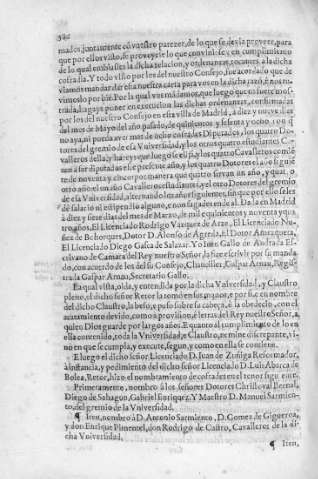 mados juntamente cõ vuestro parezer, de lo que se deuia proveer, para
que por ellos visto, se proueyesse lo que conviniesse, y en cumplimiento
de lo qual embiastes la dicha relacion, y ordenanzas, tocantes a la dicha
cofradia. Y todo visto por los del nuestro Consejo, fue acordado que de
viamos mandar dar esta nuestra carta para vos en la dicha razon, e nos tu
vimoslo por biẽ. Por la qual vos mãdamos, que luego que os fuere mos-
trada, hagays poner en execucion las dichas ordenanzas, confirmadas
por los del nuestro Consejo en esta villa de Madrid, a diez y nueue dias
del mes de Mayo del año passado, de quinientos y sesenta y ocho, cõ q̃
no aya, ni pueda auer mas de ocho cofrades Diputados, los quatro Do-
tores del gremio de essa Vniuersidad, y los otros quatro estudiantes Ca-
valleros della
te de noventa y cinco, por manera que quatro sirvan vn año, y qual, o
otro año: el vn año Cavalleros estudiantes, y el otro Dotores del gremio
de essa Vniuersidad, alternando los años siguientes, sin que por esse
de salario ni estipendio alguno, e non fagades ende al. Dada en Madrid
à diez y siete dias del mes de Março, de mil e quinientos y noventa y qua
tro años, El Licenciado Rodrigo Vazquez de Arze, El Licenciado Nu-
ñez de Bohorques, Dotor D. Alonso de Agreda, el Dotor Amezqueta,
El Licenciado Diego Gasca de Salazar. Yo Iuan Gallo de Andrada Es-
crivano de Camara del Rey nuestro Señor, la fize escrivir por su manda-
do, con acuerdo de los del su Consejo, Chanciller, Gaspar Arnao, Regis-
trada Gaspar Arnao, Secretario Gallo.
La qual vista, oida, y entendida por la dicha Vniuersidad, y Claustro
pleno, el dicho señor Retor la tomò en sus manos, e por si, e en nombre
del dicho Claustro, la beso, e puso sobre su cabeça, è la obedecio, con el
acatamiento devido, como a provision, e letras del Rey nuestro Señor, a
quien Dios guarde por largos años. E quanto al cumplimiento de lo en
ella contenido, toda la Vniuersidad, e Claustro, nemine discrepante, vi-
no en que se cumpla, y execute, segun, y como en ella se contiene.
E luego el dicho señor Licenciado D. Iuan de Zuñiga Reformador,
à instancia, y pedimiento del dicho señor Licenciado D. Luis Abarca de
Bolea, Retor, hizo el nombramiento de cofrades en el tenor siguiente.
Primeramente, nombrò à los señores Dotores Christoval Bernal,
Diego de Sahagun, Gabriel Enriquez, Y Maestro D. Manuel Sarmien-
to, del gremio de la Vniuersidad.
¶ Iten, nombro à D. Antonio Sarmiento, D. Gomez de Figueroa,
y don Enrique Pimentel, don Rodrigo de Castro, Cavalleros de la di-
cha Vniuersidad.
¶ Iten,